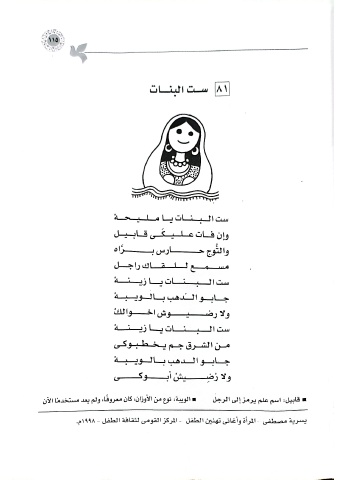 ١١٥
٨١ ست البنات
ست البنات يا مليحة
وإن فات عليكى قابيل
والتُوج حارس برَّاه
مسمع للقاك راجل
ست البنات يا زينة
جابو الدهب بالويبة
ولا رضيوش اخوالك
ست البنات يا زينة
من الشرق جم يخطبوكى
جابو الدهب بالويبة
ولا رُضيش أبوكى
■ قابيل: اسم علم يرمز إلى الرجل ■ الويبة، نوع من الأوزان، كان معروفًا، ولم يعد مستخدمًا الآن
يسرية مصطفى المرأة وأغانى تهنين الطفل - المركز القومى لثقافة الطفل - ١٩٩٨م.